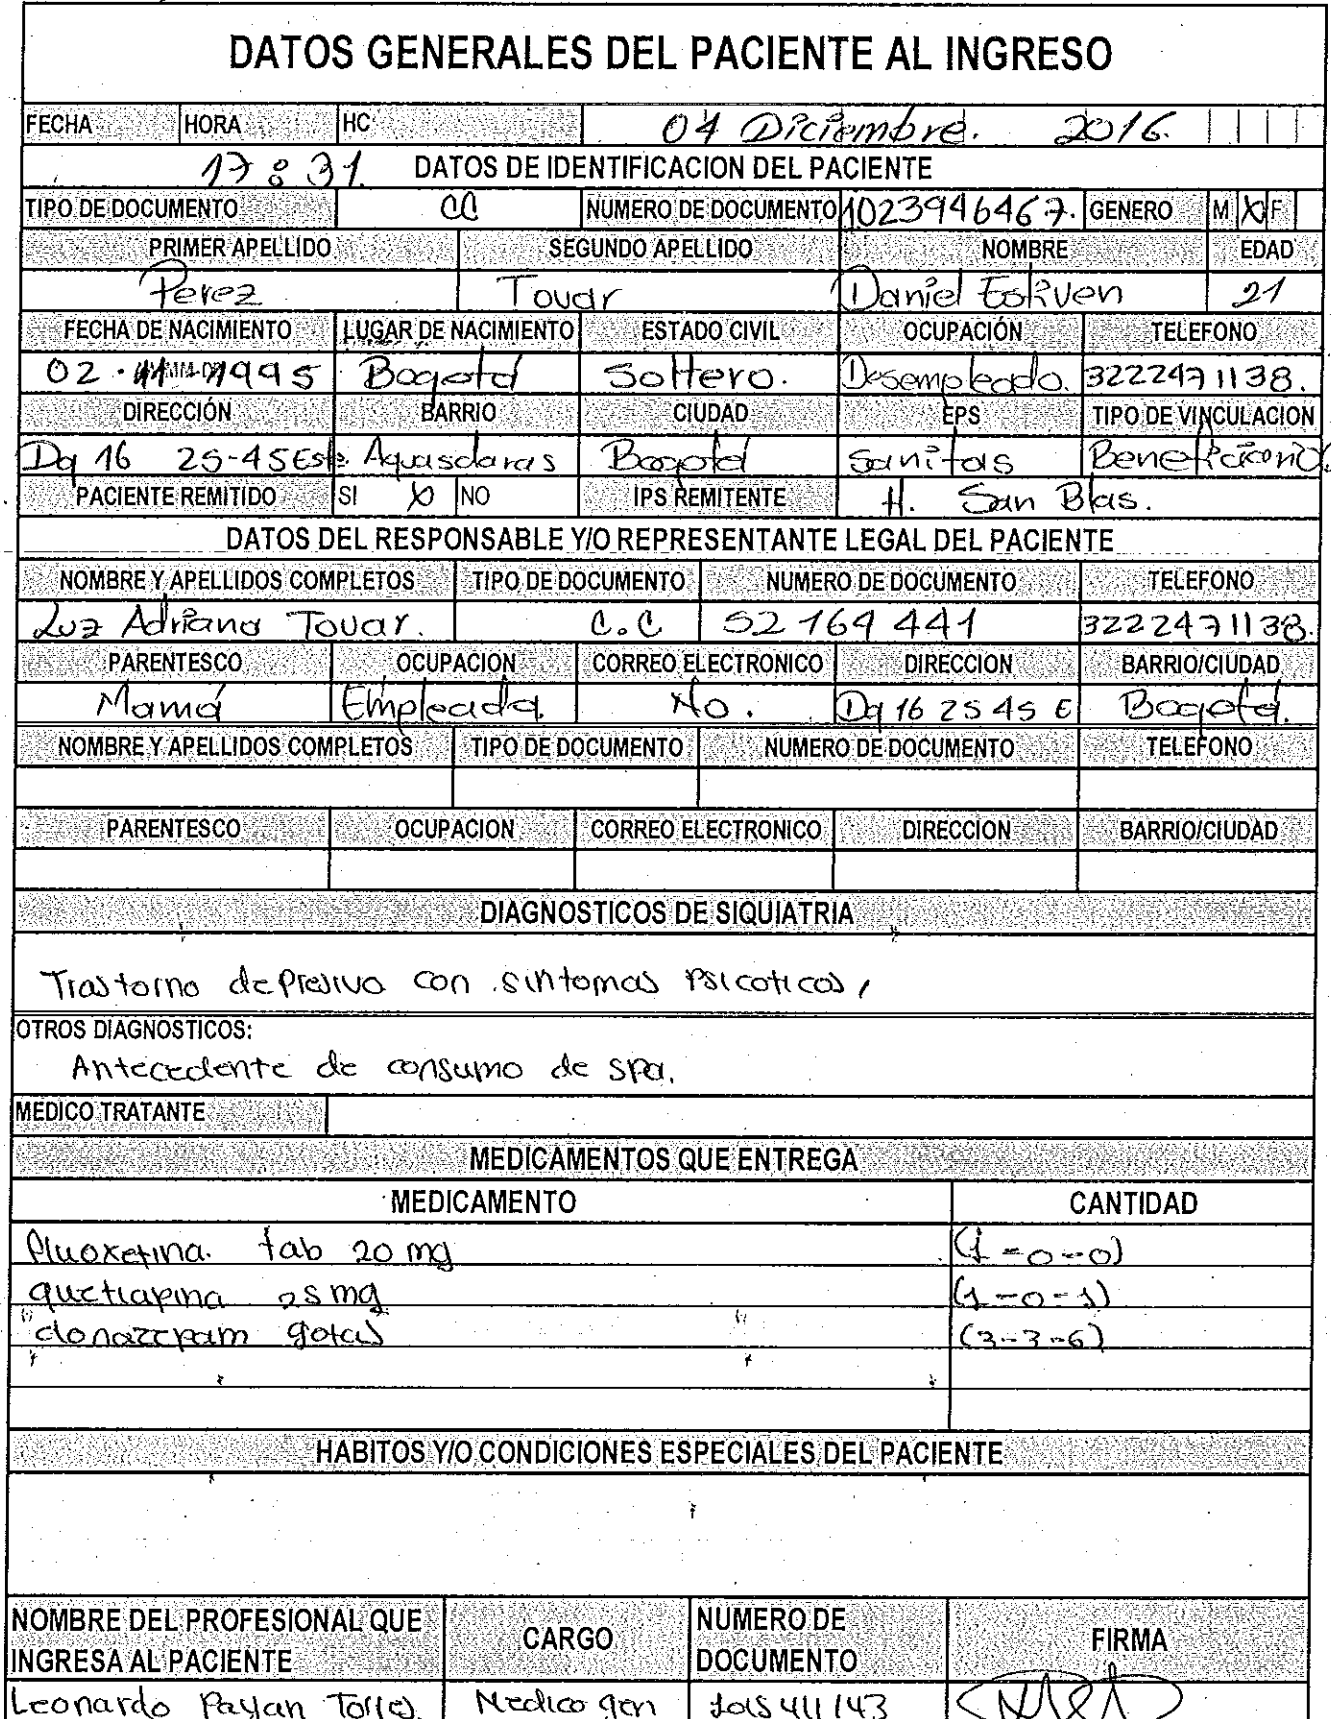 DATOS GENERALES DEL PACIENTE AL INGRESO
FECHA HORA HC 04 Diciembre. 2016.
17:31. DATOS DE IDENTIFICACION DEL PACIENTE
TIPO DE DOCUMENTO CC NUMERO DE DOCUMENTO 1023946467. GENERO M X F
PRIMER APELLIDO SEGUNDO APELLIDO NOMBRE EDAD
Perez Tovar Daniel Estiven 21
FECHA DE NACIMIENTO LUGAR DE NACIMIENTO ESTADO CIVIL OCUPACIÓN TELEFONO
02 · 11 1995 Bogotá Soltero. Desempleado. 3222471138.
DIRECCIÓN BARRIO CIUDAD EPS TIPO DE VINCULACION
Dg 16 25-45 Este Aguasclaras Bogotá Sanitas Beneficiario
PACIENTE REMITIDO SI X NO IPS REMITENTE H. San Blas.
DATOS DEL RESPONSABLE Y/O REPRESENTANTE LEGAL DEL PACIENTE
NOMBRE Y APELLIDOS COMPLETOS TIPO DE DOCUMENTO NUMERO DE DOCUMENTO TELEFONO
Luz Adriana Tovar. C.C 52 164 441 3222471138.
PARENTESCO OCUPACION CORREO ELECTRONICO DIRECCION BARRIO/CIUDAD
Mamá Empleada. No. Dg 16 25 45 E Bogotá.
NOMBRE Y APELLIDOS COMPLETOS TIPO DE DOCUMENTO NUMERO DE DOCUMENTO TELEFONO
PARENTESCO OCUPACION CORREO ELECTRONICO DIRECCION BARRIO/CIUDAD
DIAGNOSTICOS DE SIQUIATRIA
Trastorno depresivo con sintomas psicoticos,
OTROS DIAGNOSTICOS:
Antecedente de consumo de spa.
MEDICO TRATANTE
MEDICAMENTOS QUE ENTREGA
MEDICAMENTO CANTIDAD
fluoxetina. tab 20 mg (1-0-0)
quetiapina 25 mg (1-0-1)
clonazepam gotas (3-3-6)
HABITOS Y/O CONDICIONES ESPECIALES DEL PACIENTE
NOMBRE DEL PROFESIONAL QUE INGRESA AL PACIENTE CARGO NUMERO DE DOCUMENTO FIRMA
Leonardo Payan Torres. Medico gen 1015411143